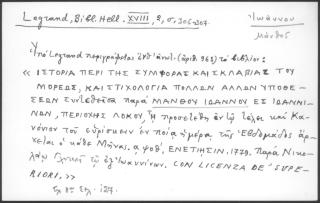 Legrand, Bibl. Hell. XVIII, 2, σ. 306-307.
Ἰωάννου
Μάνθος
Ὑπὸ Legrand περιγράφεται (ἀριθ. 968) τὸ βιβλίον:
« ΙΣΤΟΡΙΑ ΠΕΡΙ ΤΗΣ ΣΥΜΦΟΡΑΣ ΚΑΙ ΣΚΛΑΒΙΑΣ ΤΟΥ
ΜΟΡΕΩΣ, ΚΑΙ ΣΤΙΧΟΛΟΓΙΑ ΠΟΛΛΩΝ ΑΛΛΩΝ ΥΠΟΘΕ-
ΣΕΩΝ συντεθεῖσα παρὰ ΜΑΝΘΟΥ ΙΩΑΝΝΟΥ ΕΞ ΙΩΑΝΝΙ-
ΝΩΝ, ΠΕΡΙΟΧΗΣ ΛΟΚΟΥ. Ἧ προσετέθη ἐν τῷ τέλει καὶ Κα-
νόνιον τοῦ εὑρίσκειν ἐν ποίᾳ ἡμέρᾳ τῆς Ἑβδομάδος ἄρ-
χεται ὁ κάθε Μήνας. ͵αψοθ΄. ΕΝΕΤΙΗΣΙΝ, 1779. Παρὰ Νικο-
λάῳ Γλυκεῖ τῷ ἐξ Ἰωαννίνων. CON LICENZA DE' SUPE-
RIORI. »